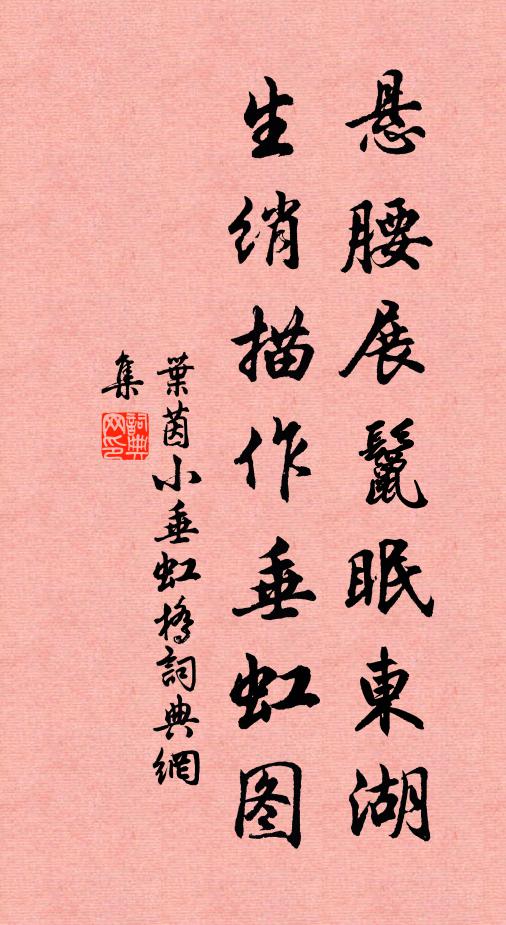 悬腰展鬣眠東湖
生绡描作垂虹图
葉茵小垂虹橋詞典網
集
詞典网印